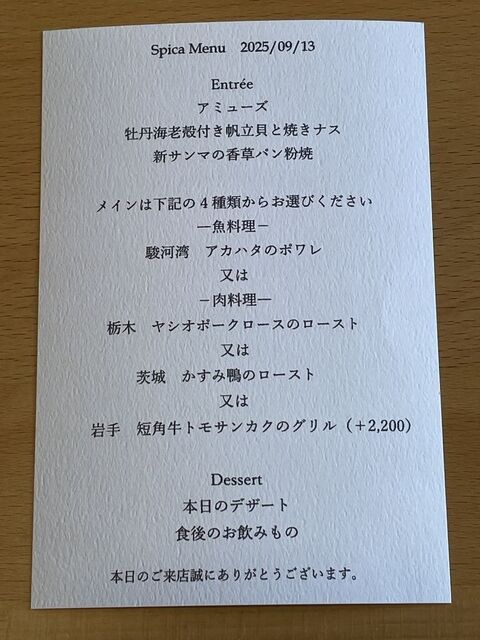 Spica Menu　2025/09/13
Entrée
アミューズ
牡丹海老殻付き帆立貝と焼きナス
新サンマの香草パン粉焼
メインは下記の４種類からお選びください
―魚料理－
駿河湾　アカハタのポワレ
又は
－肉料理―
栃木　ヤシオポークロースのロースト
又は
茨城　かすみ鴨のロースト
又は
岩手　短角牛トモサンカクのグリル（＋2,200）
Dessert
本日のデザート
食後のお飲みもの
本日のご来店誠にありがとうございます。